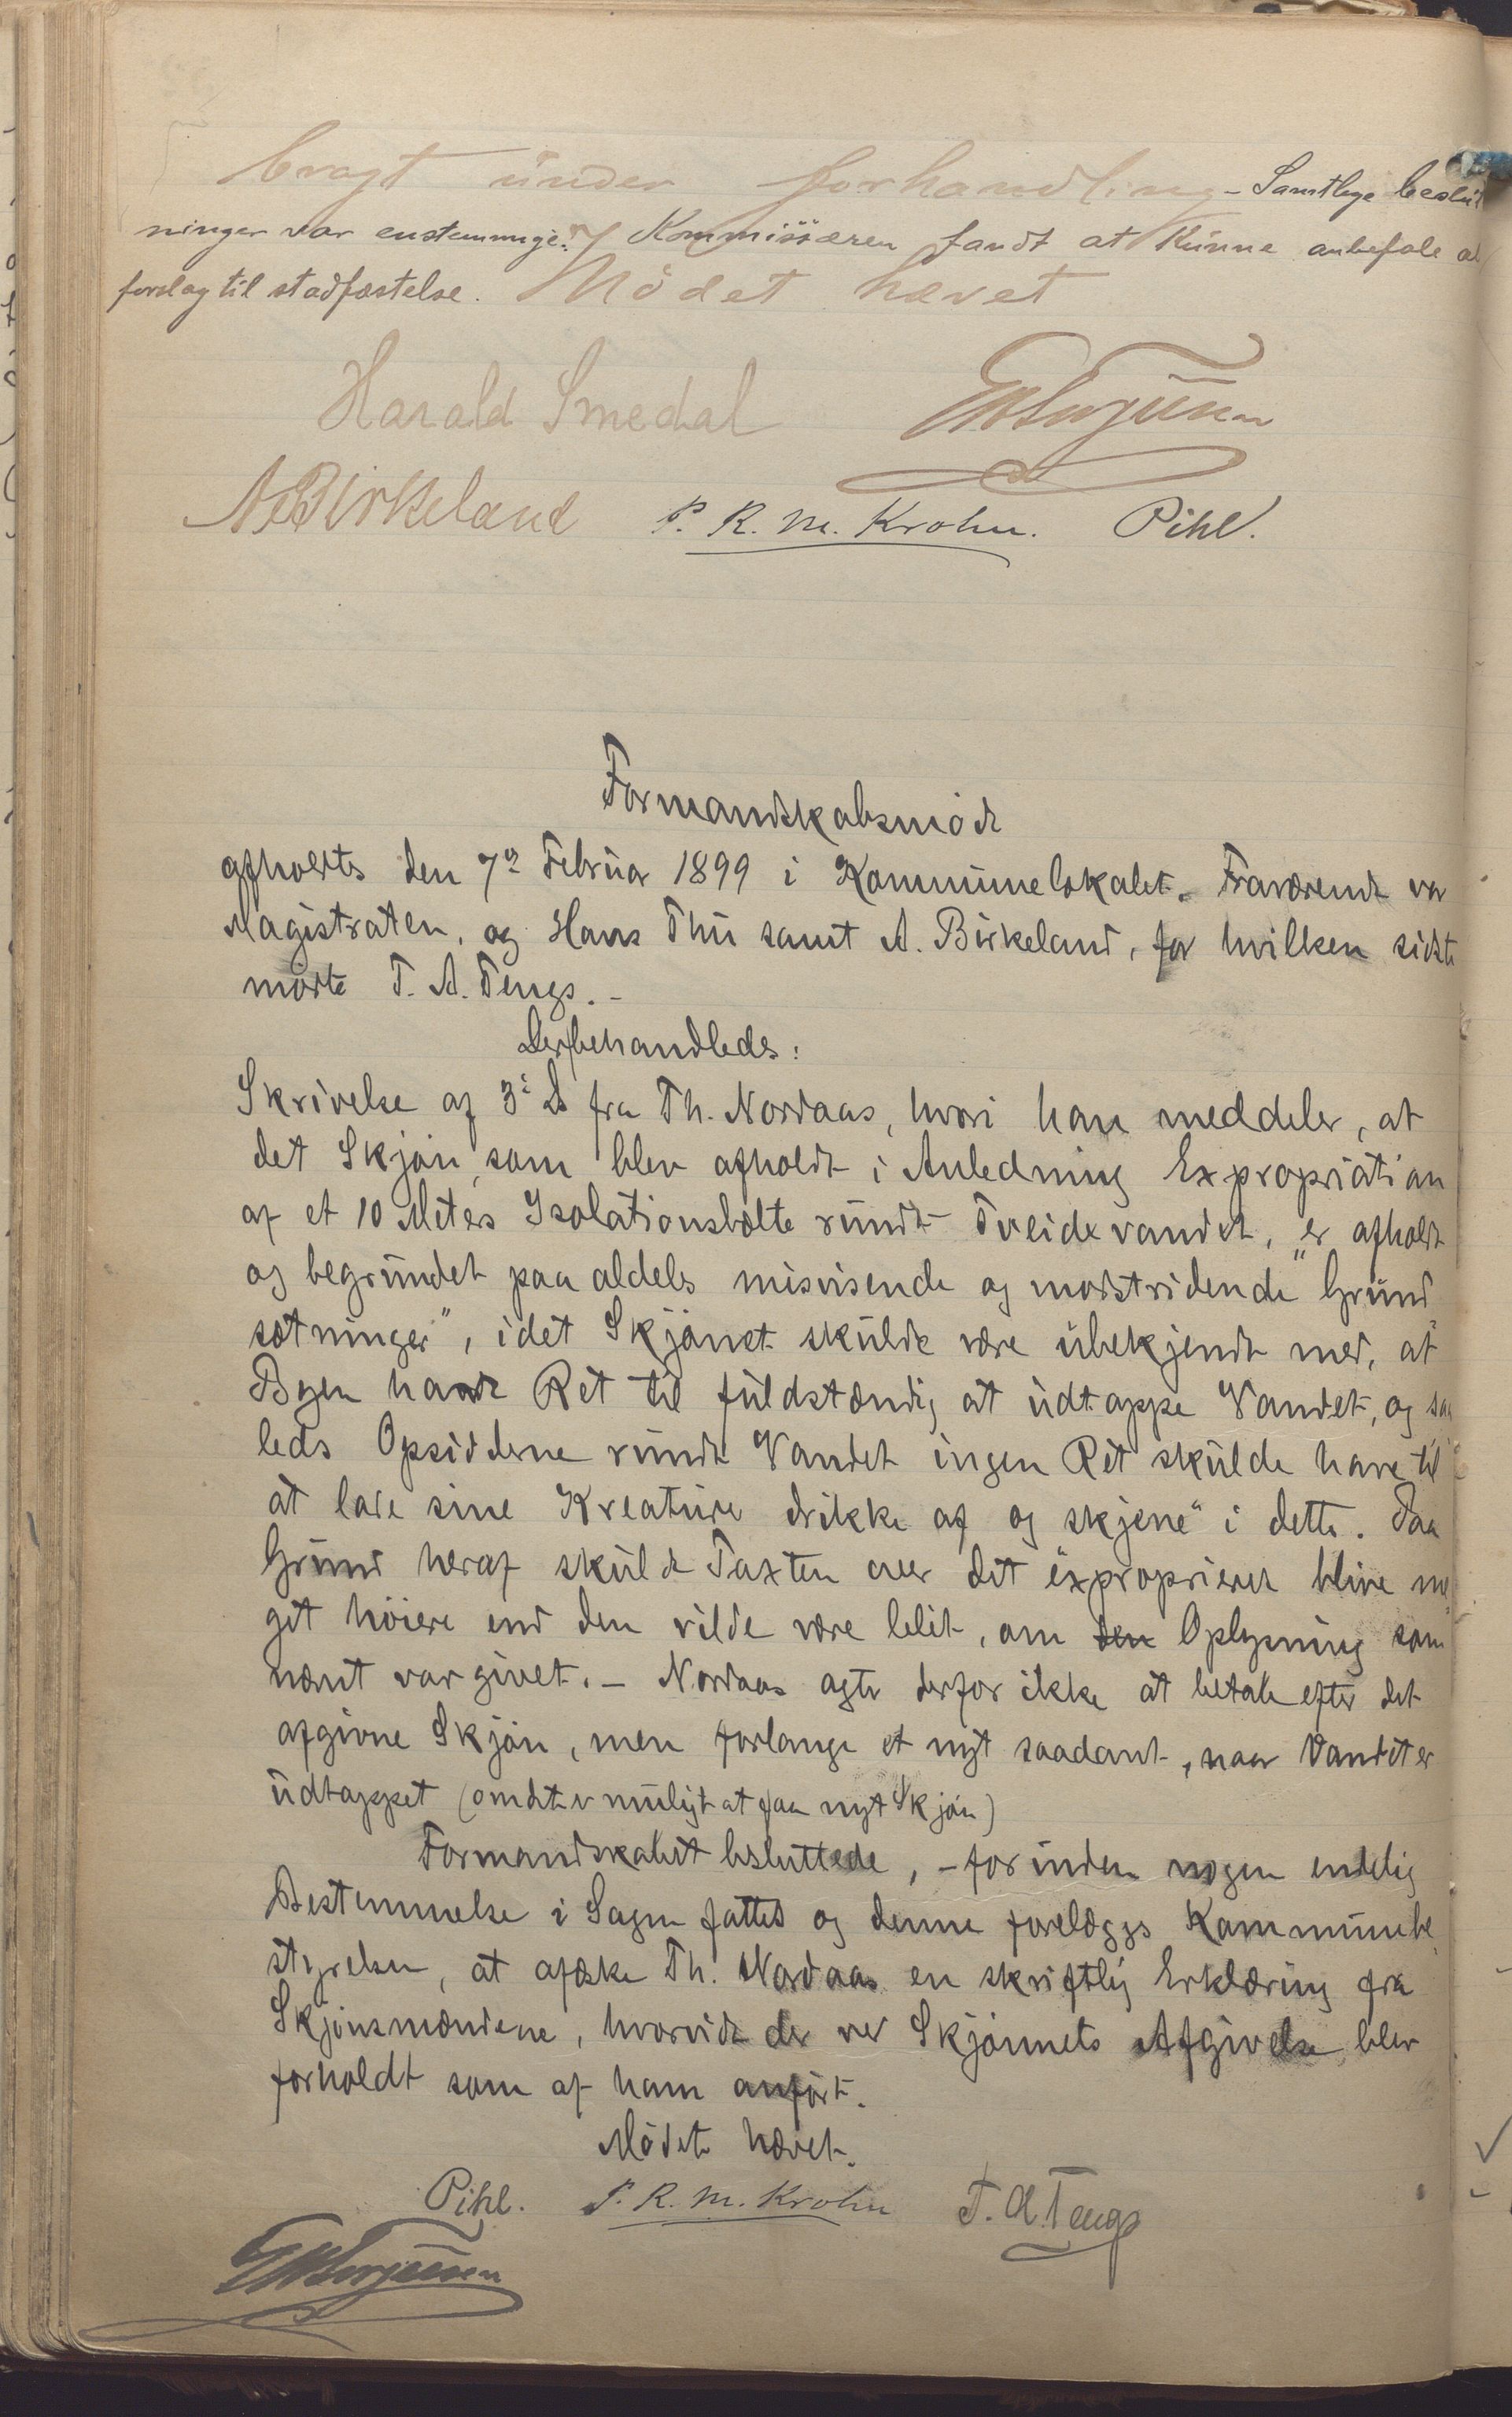 bragt under forhandling – Samtlige beslut
ninger var enstemmige. Kommissæren fandt at kunne anbefale al
forslag til stadfæstelse. Mödet hævet
Harald Smedal
A Birkeland P. R. M. Krohn. Pihl.
Formandskabsmöde
afholdtes den 7de Februar 1899 i Kommunelokalet. Fraværende var
Magistraten, og Hans Thu samt A. Birkeland, for hvilken sidste
mödte T. A. Tengs. –
Der behandledes:
Skrivelse af 3die ds fra Th. Nordaas, hvori han meddeler, at
det Skjön, som blev afholdt i Anledning Expropriation
af et 10 Meters Isolationsbælte rundt Tveidevandet, "er afholdt
og begrundet paa aldeles misvisende og modstridende Grund
sætninger", idet Skjönet skulde være ubekjendt med, at
Byen havde Ret til fuldstændig at udtappe Vandet, og saa
ledes Opsidderne rundt Vandet ingen Ret skulde have til
at lade sine Kreature drikke af og "skjene" i dette. Paa
Grund heraf skulde Taxten over det exproprierede blive me
get höiere end den vilde være blit, om den Oplysning som
nævnt var givet. – Nordaas agter derfor ikke at betale efter det
afgivne Skjön, men forlange et nyt saadant, naar Vandet er
udtappet (om det er muligt at faa nyt Skjön)
Formandskabet besluttede, – forinden nogen endelig
Bestemmelse i Sagen fattes og denne forelægges Kommunebe
styrelsen, at afæske Th. Nordaas en skriftlig Erklæring fra
Skjönsmændene, hvorvidt der ved Skjönnets Afgivelse blev
forholdt som af ham anfört.
Mödet hævet.
Pihl. P. R. M. Krohn T. A. Tengs